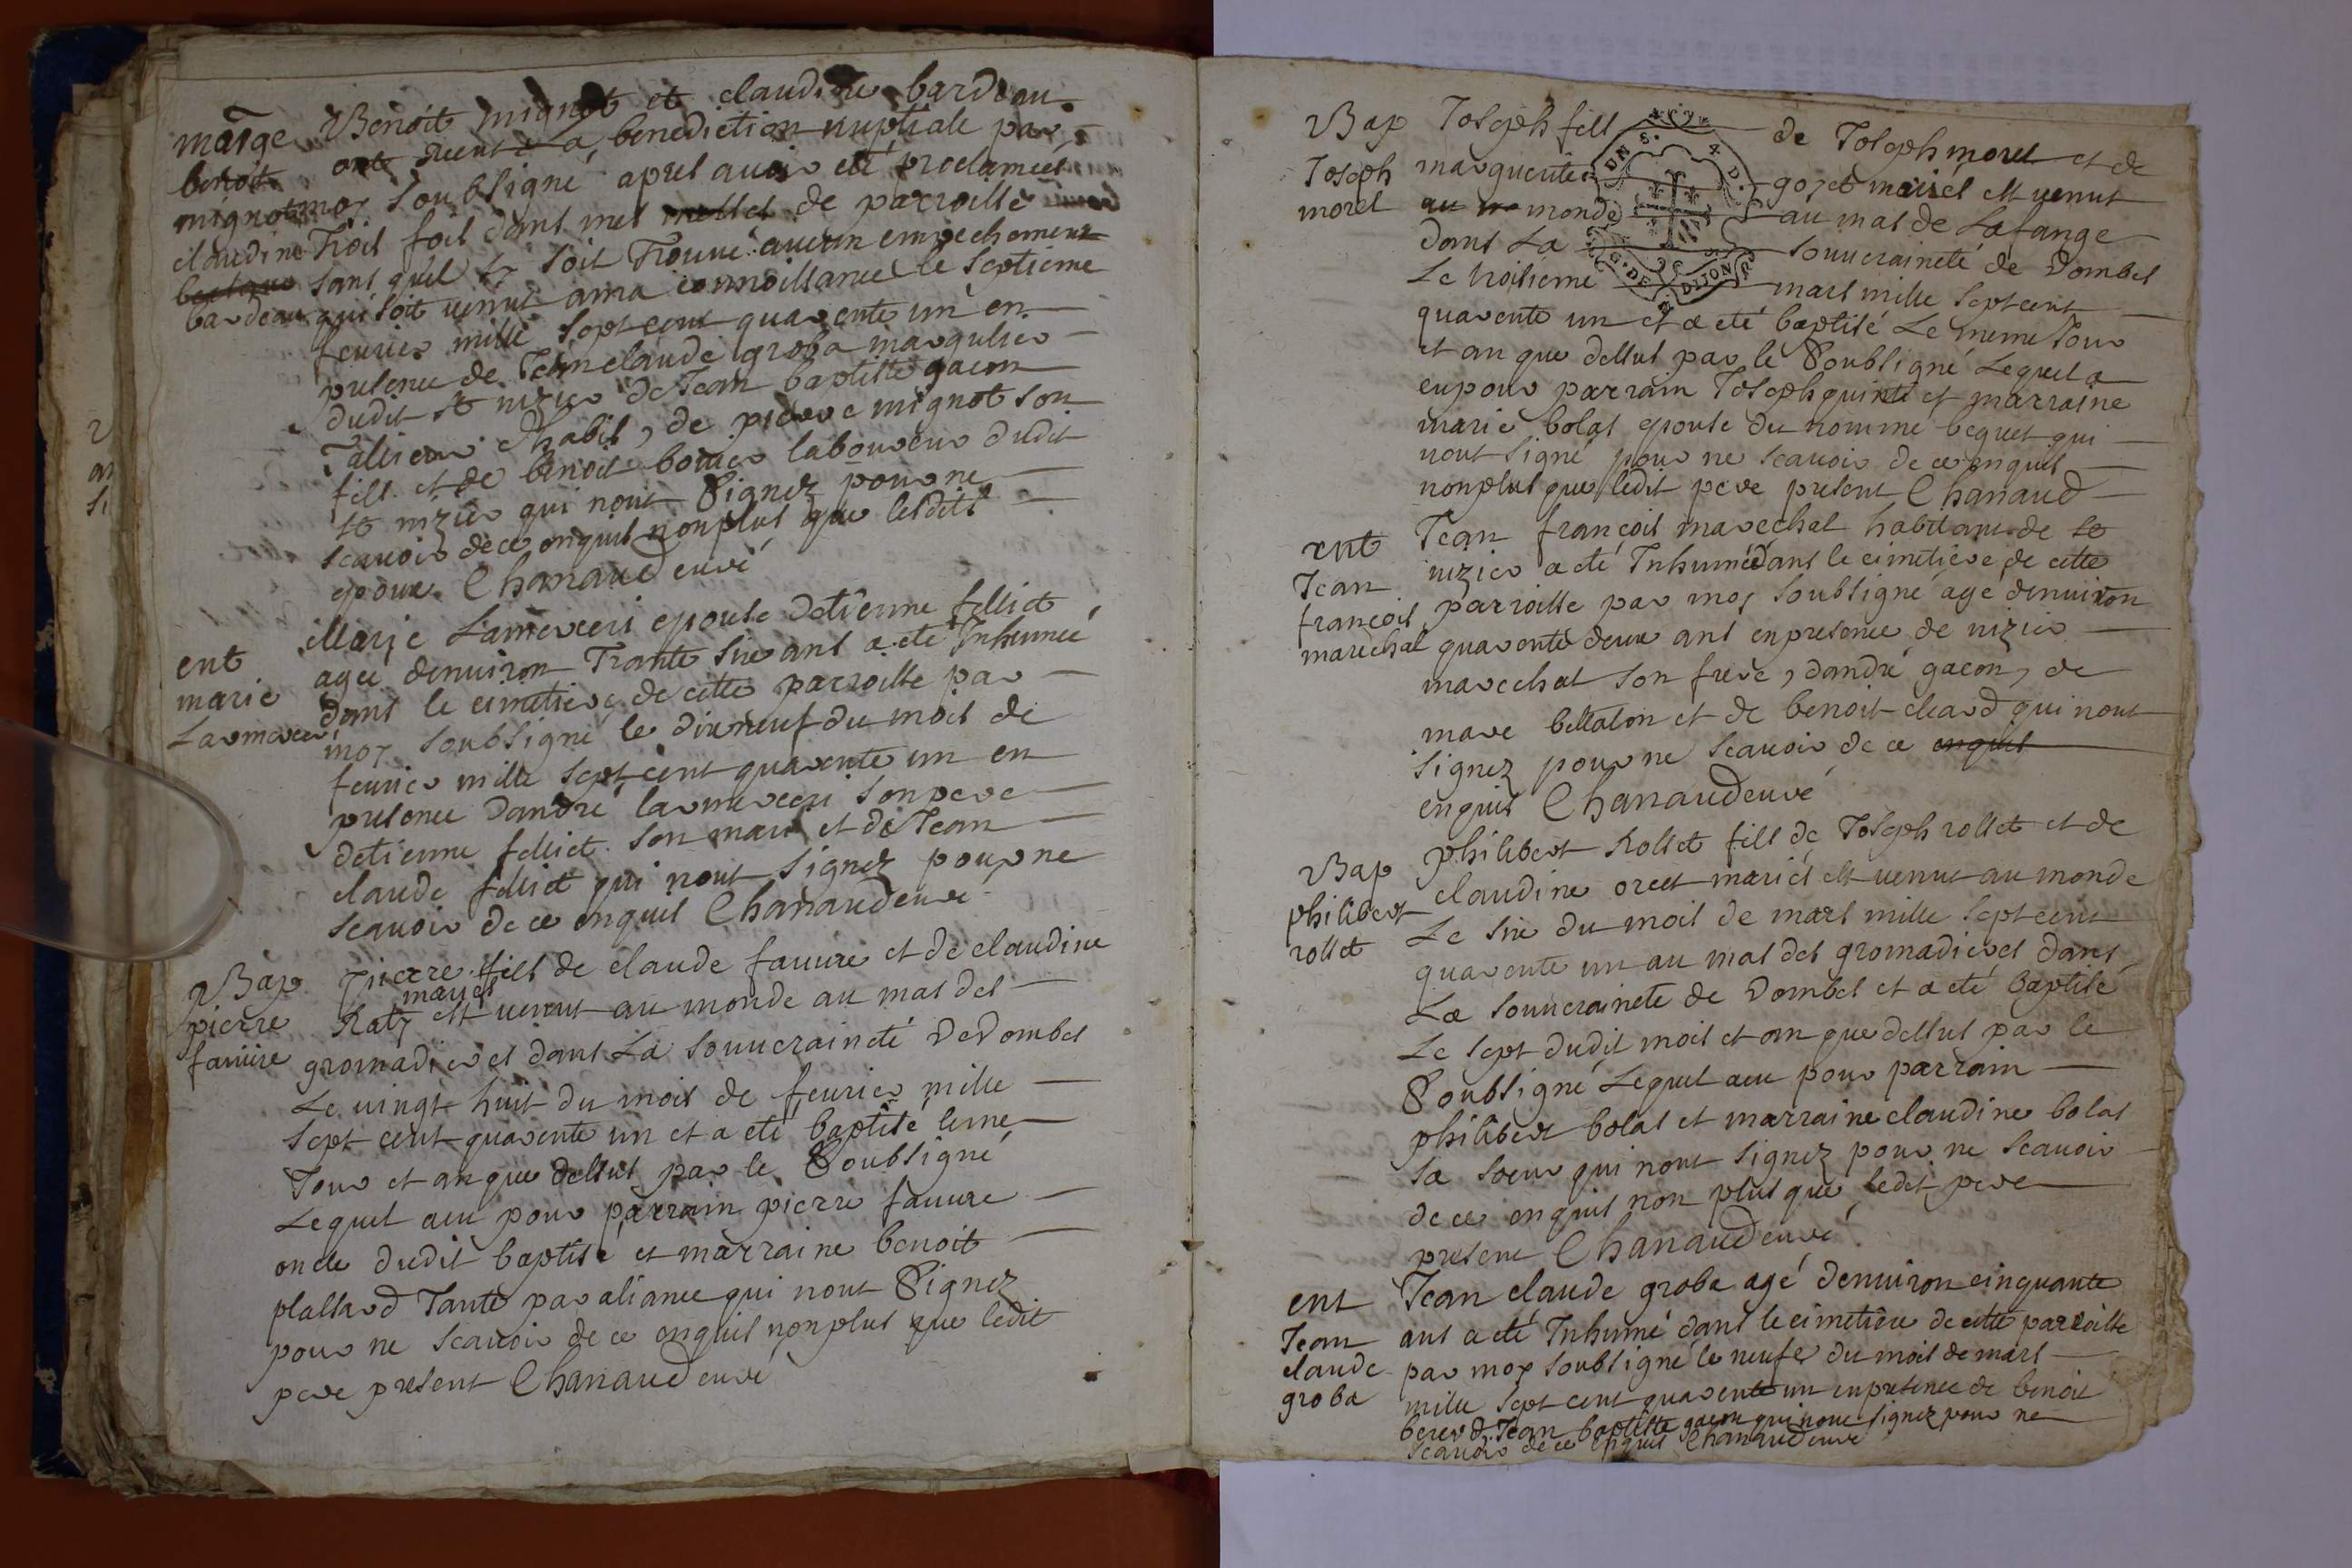 marge
benoit
mignot
claudine
bardeau
Benoit mignot et claudine bardeau
ont receut la benediction nuptiale par
moy soubsigné apres avoir eté proclameés
Trois fois dans mes messes de parroisse
sans quil sy soit Trouvé aucun empechement
qui soit venut a ma connoissance le septieme
feurier mille sept cent quarente un en
presence de Jean claude groba margulier
dudit st nizier de Jean baptiste gacon
Tallieur dhabit, de pierre mignot son
fils et de benoit bouier laboureur dudit
st nizier qui nont signez pour ne
scavoir de ce enquis non plus que lesdits
epoux Chanaud curé
ent
marie
Larmerceri
Marie Lamerceri epouse detienne felliet
agee denuiron Trante six ans a eté Inhumée
dans le cimetiere de cette parroisse par
moy soubsigné le dixneuf du mois de
feurier mille sept cent quarente un en
presence dandré larmerceri son pere
detienne felliet son mari et de Jean
claude felliet qui nont signez pour ne
scavoir de ce enquis Chanaud curé
Bap
pierre
favure
Pierre fils de claude favure et de claudine
Raty mariés est venut au monde au mas des
gromadieres dans La souueraineté De Dombes
Le vingt huit du mois de feurier mille
sept cent quarente un et a eté baptisé leme
Jour et an que dessus par le soubsigné
Lequel a eu pour parrain pierre favure
oncle dudit baptisé et marraine benoit
plassard Tante par aliance qui nont signez
pour ne scavoir de ce enquis nonplus que ledit
pere present Chanaud curé
Bap
Joseph
morel
Joseph fils de Joseph morel et de
marguerite goyet mariés est venut
monde au mas de Lafange
dans La souueraineté de Dombes
Le troisieme mars mille sept cent
quarente un et a eté baptisé Le meme Jour
et an que dessus par le soubsigné Lequel a
eu pour parrain Joseph guinte et marraine
marie bolas epouse du nommé bequet qui
nont signé pour ne scavoir de ce enquis
nonplus que ledit pere present Chanaud
ent
Jean
francois
marechal
Jean francois marechal habitant de st
nizier a eté Inhumé dans le cimetiere de cette
parroisse par moy soubsigné agé denuiron
quarente deux ans en presence de nizier
marechal son frere, dandré gacon, de
marc bellaton et de benoit cleard qui nont
signez pour ne scavoir de ce enquis
enquis Chanaud curé
Bap
philibert
rollet
philibert Rollet fils de Joseph rollet et de
claudine orcet mariés est venut au monde
Le six du mois de mars mille sept cent
quarente un au mas des gromadieres dans
La souueraineté de Dombes et a eté baptisé
Le sept dudit mois et an que dessus par le
soubsigné Lequel a eu pour parrain
philibert bolas et marraine claudine bolas
sa soeur qui nont signez pour ne scavoir
de ce enquis non plus que ledit pere
present Chanaud curé
ent
Jean
claude
groba
Jean claude groba agé denuiron cinquante
ans a eté Inhumé dans le cimetiere de cette parroisse
par moy soubsigné le neufe du mois de mars
mille sept cent quarente un en presence de benoit
Jean baptiste gacon qui nont signez pour ne
scavoir de ce enquis Chanaud curé